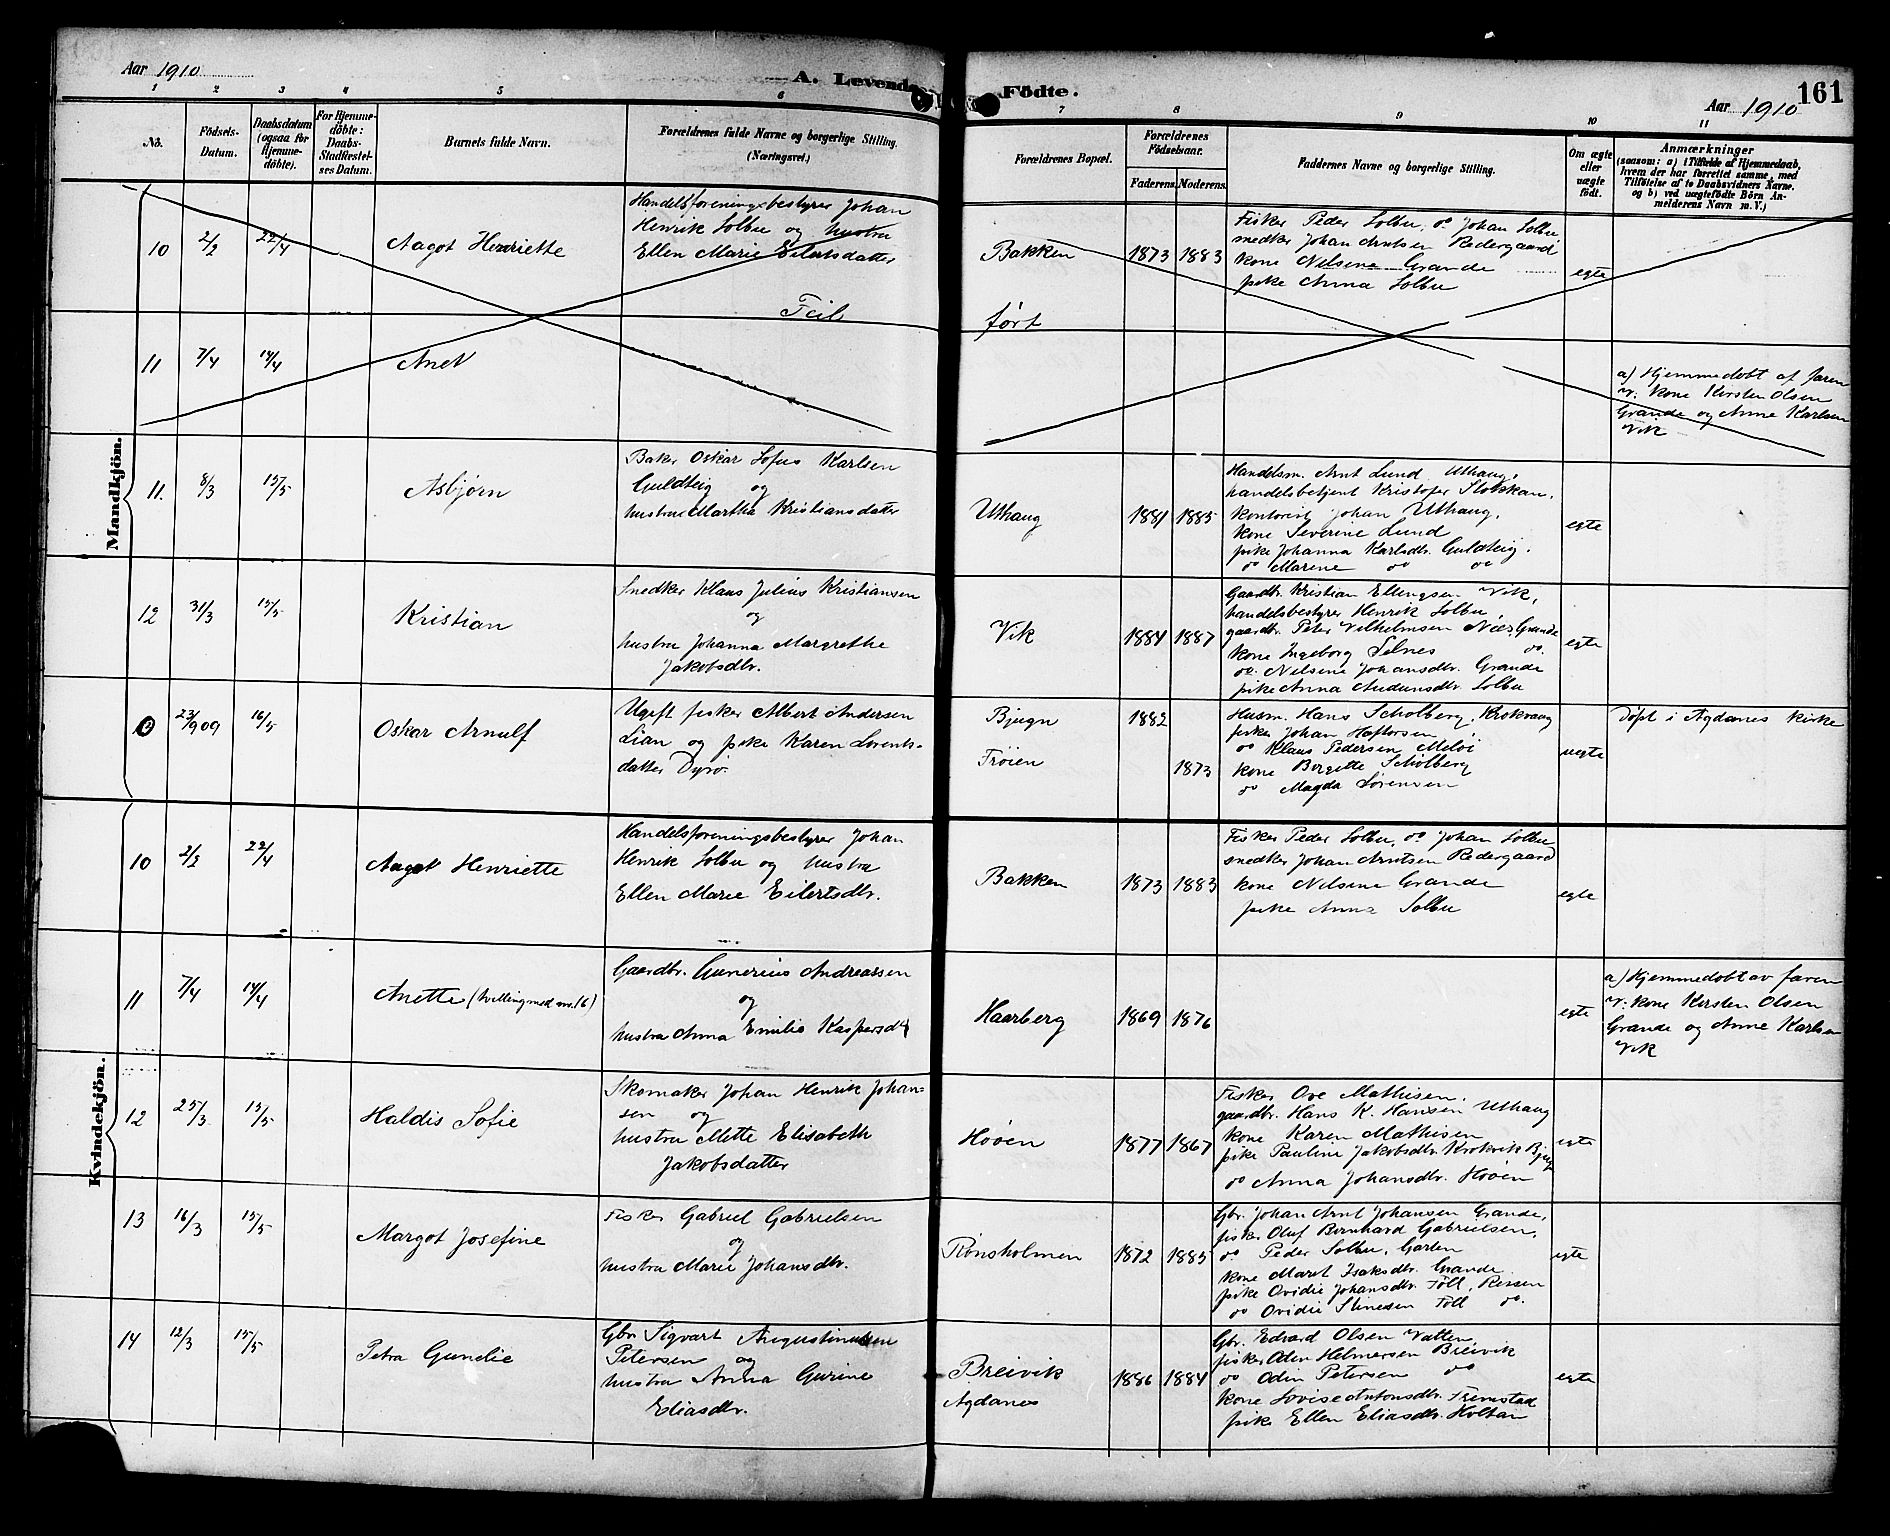 Aar 1910
A. Levende
Födte.
161
Aar 1910
1 2 3 4 5 6 7 8 9 10 11
No.
Födsels-
Datum.
Daabsdatum
(ogsaa for
Hjemme-
döbte).
For Hjemme-
döbte:
Daabs-
Stadfæstel-
ses Datum.
Barnets fulde Navn.
Forældrenes fulde Navne og borgerlige Stilling.
(Næringsvei.)
Forældrenes Bopæl.
Forældrenes
Födselsaar.
Faderens. Moderens.
Faddernes Navne og borgerlige Stilling.
Om ægte
eller
uægte
födt.
Anmærkninger
(saasom: a) i Tilfælde af Hjemmedaab,
hvem der har forrettet samme, med
Tilföielse af to Daabsvidners Navne.
og b) ved uægtefödte Börn An-
melderens Navn m. V.)
Mandkjön.
10 2/2 22/4 Aagot Henriette
Handelsforeningsbestyrer Johan
Henrik Solbu og hustru
Ellen Marie Eilertsdatter
Bakken 1873 1883
Fisker Peder Solbu, do Johan Solbu
snedker Johan Arntsen Redergaard
kone Nilsine Grande
pike Anna Solbu
egte
Feil
ført
11 7/4 14/4 Anet
a) Hjemmedøbt af faren
v: kone Kirsten Olsen
Grande og Anne Karlsen
Vik
11. 8/3 15/5 Asbjørn
Baker Oskar Sofus Karlsen
Guldteig og
hustru Martha Kristiansdatter
Uthaug 1881 1885
Handelsm. Arnt Lund Uthaug,
handelsbetjent Kristofer
kontorist Johan Uthaug,
kone Severine Lund
pike Johanna Karlsdtr. Guldteig.
do Marine do do
egte
12 31/3 15/5 Kristian
Snedker Klaus Julius Kristiansen
og
hustru Johanna Margrethe
Jakobsdtr.
Vik 1884 1887
Gaardbr. Kristian Ellingsen Vik,
handelsbestyrer Henrik Solbu,
gaardbr. Peter Vilhelmsen Næs Grande
kone Ingeborg Selnes do.
do. Nilsine Johansdtr. Grande
pike Anna Audunsdtr. Solbu
egte
23/9 09 16/5 Oskar Arnulf
Ugift fisker Albert Andersen
Lian og pike Karen Lorents-
datter Dyrø
Bjugn 1882
Frøien 1873
Husm. Hans Scholberg, Krokvaag
fisker Johan Haftorsen
do Klaus Pedersen Meløi
kone Bergette Scholberg
do Magda Sørensen
uegte
Døpt i Agdanes kirke
Kvindekjön.
10 2/2 22/4 Aagot Henriette
Handelsforeningsbestyrer Johan
Henrik Solbu og hustru
Ellen Marie Eilertsdtr.
Bakken 1873 1883
Fisker Peder Solbu, do Johan Solbu
snedker Johan Arntsen Redergaard
kone Nilsine Grande
pike Anna Solbu
egte
11 7/4 14/4 Anette (tvilling med no. 16)
Gaardbr. Gunerius Andreassen
og
hustru Anna Emilie Kaspersdtr
Haarberg 1869 1876
egte
a) Hjemmedøbt av faren
v: kone Kirsten Olsen
Grande og Anne Karlsen
Vik
12 25/3 15/5 Haldis Sofie
Skomaker Johan Henrik Johan-
sen og
hustru Mette Elisabeth
Jakobsdatter
Høøen 1877 1867
Fisker Ove Mathisen,
gaardbr. Hans K. Hansen Uthaug
kone Karen Mathisen
pike Pauline Jakobsdtr. Krokvik Bjugn
do Anna Johansdtr. Høøen
egte
13 16/3 15/5 Margot Josefine
Fisker Gabriel Gabrielsen
og
hustru Marie Johansdtr.
Rønsholmen 1872 1885
Gbr. Johan Arnt Johansen Grande,
fisker Oluf Bernhard Gabrielsen,
do Peder Solbu, Garten
kone Maret Isaksdtr. Grande
pike Ovidie Johansdtr. Föll, Rissen
do Ovidie Stinesen Föll do.
egte
14 12/3 15/5 Petra Gundie
Gbr. Sigvart Augustinussen
Petersen og
hustru Anna Gurine
Eliasdtr.
Breivik
Agdanes 1886 1884
Gbr. Edvard Olsen Vatten,
fisker Odin Helmersen Breivik
do Odin Petersen do
kone Lovise Antonsdtr. Fremstad
pike Ellen Eliasdtr. Holtan
egte